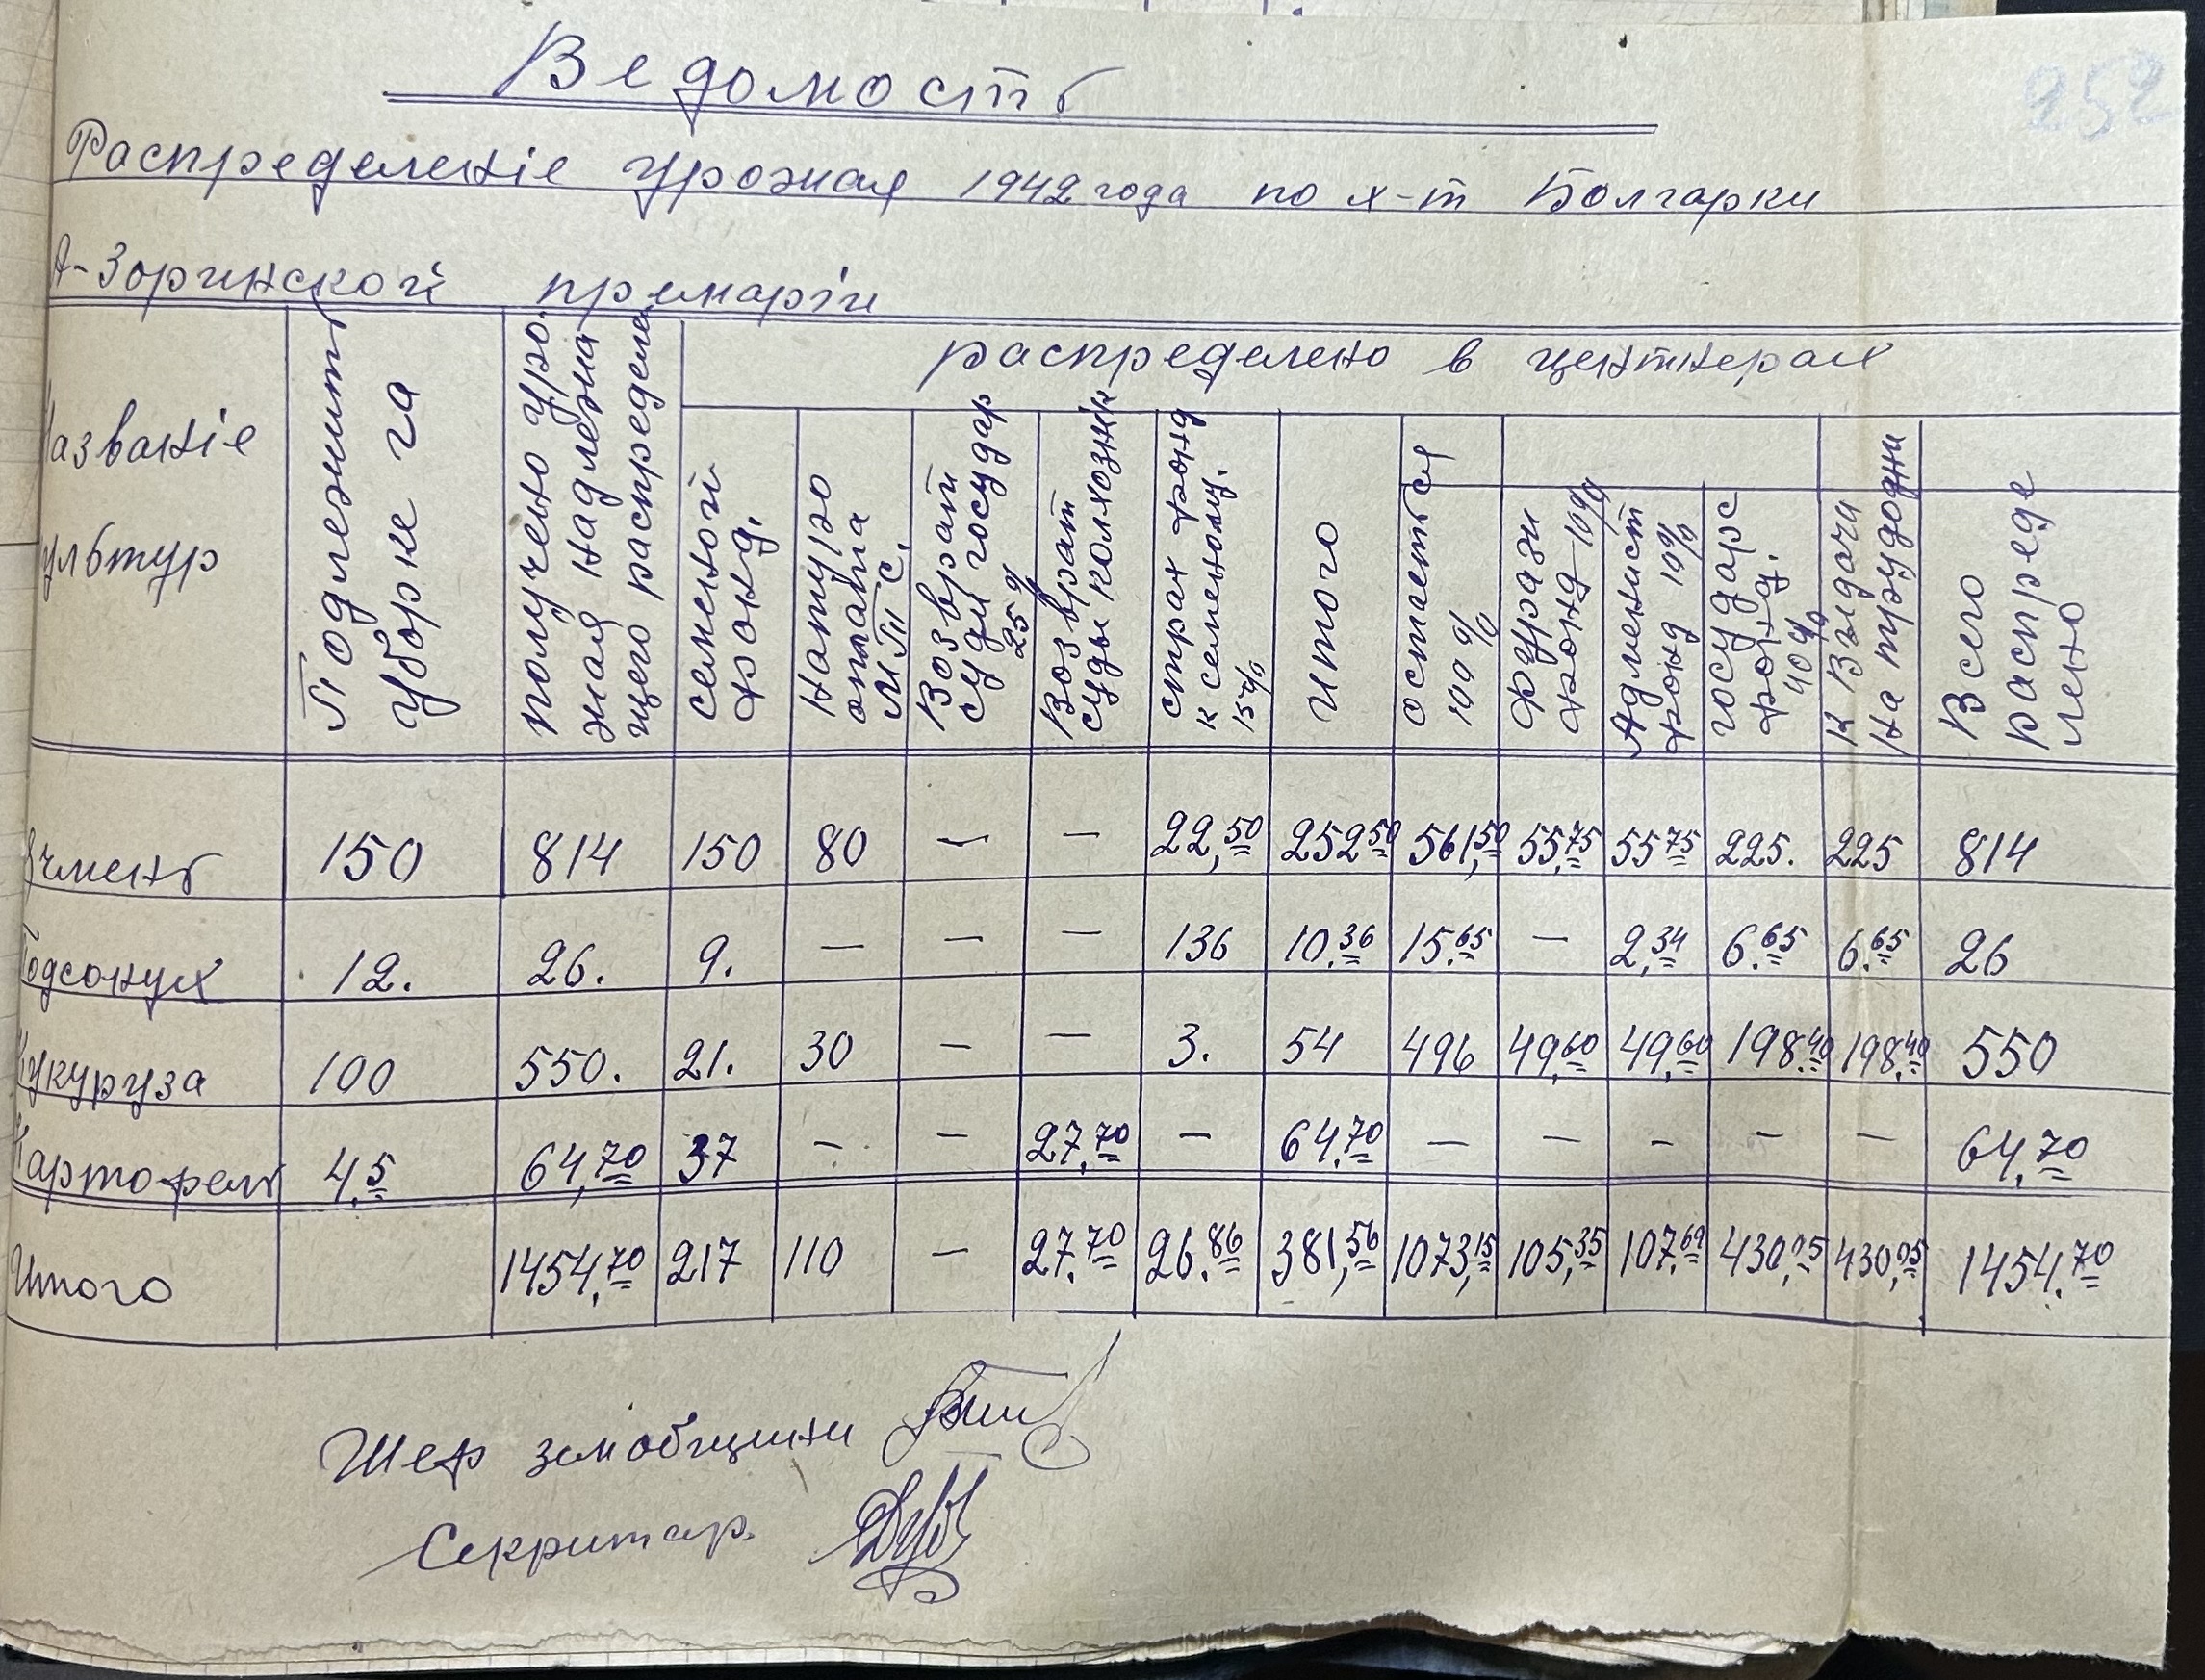 252
Ведомость
Распределеніе урожая 1942 года по х-т Болгарки
А-Зоринской примаріи
Названіе культур
Подлежит уборке га
получено уро- жая надлежа щего распределе
распределено в центнерах
семеной фонд.
Натуро оплата МТС.
Возврат суды государ 25%
Возврат суды колхозни
страх фонд к семеному. 15%
итого
остается 100%
Фураж фонд 10%
Админист фонд 10%
государс фонд. 40%
К Выдачи на трудодни
Всего распреде лено
Ячмень 150 814 150 80 — — 22,50 252 50 561,50 55,75 55 75 225. 225 814
Подсонух 12. 26. 9. — — — 136 10.36 15.65 — 2,34 6.65 6.65 26
Кукуруза 100 550. 21. 30 — — 3. 54 496 49,60 49,60 198.40 198.40 550
Картофель 4,5 64,70 37 — — 27,70 — 64,70 — — — — — 64,70
Итого 1454,70 217 110 — 27.70 26.86 381,56 1073,15 105,35 107.69 430,05 430,05 1454.70
Шеф земобщини
Секритар.